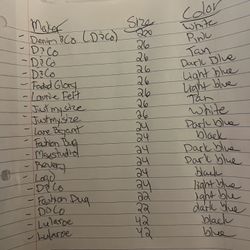 Maker Size Color
- Denim &Co (D&Co) 26 White
- D&Co 26 Pink
- D&Co 26 Tan
- D&Co 26 Dark blue
- Faded Glory 26 Light blue
- Laurie Felt 26 Light blue
- Just my size 26 Tan
- Just my size 26 White
- Lane Bryant 24 Dark blue
- Fashion Bug 24 black
- Msystudio 24 Dark blue
- 24 Dark blue
- Logo 24 black
- D&Co 24 light blue
- Fashion Bug 22 light blue
- D&Co 22 dark blue
- Lularoe 42 black
- Lularoe 42 blue